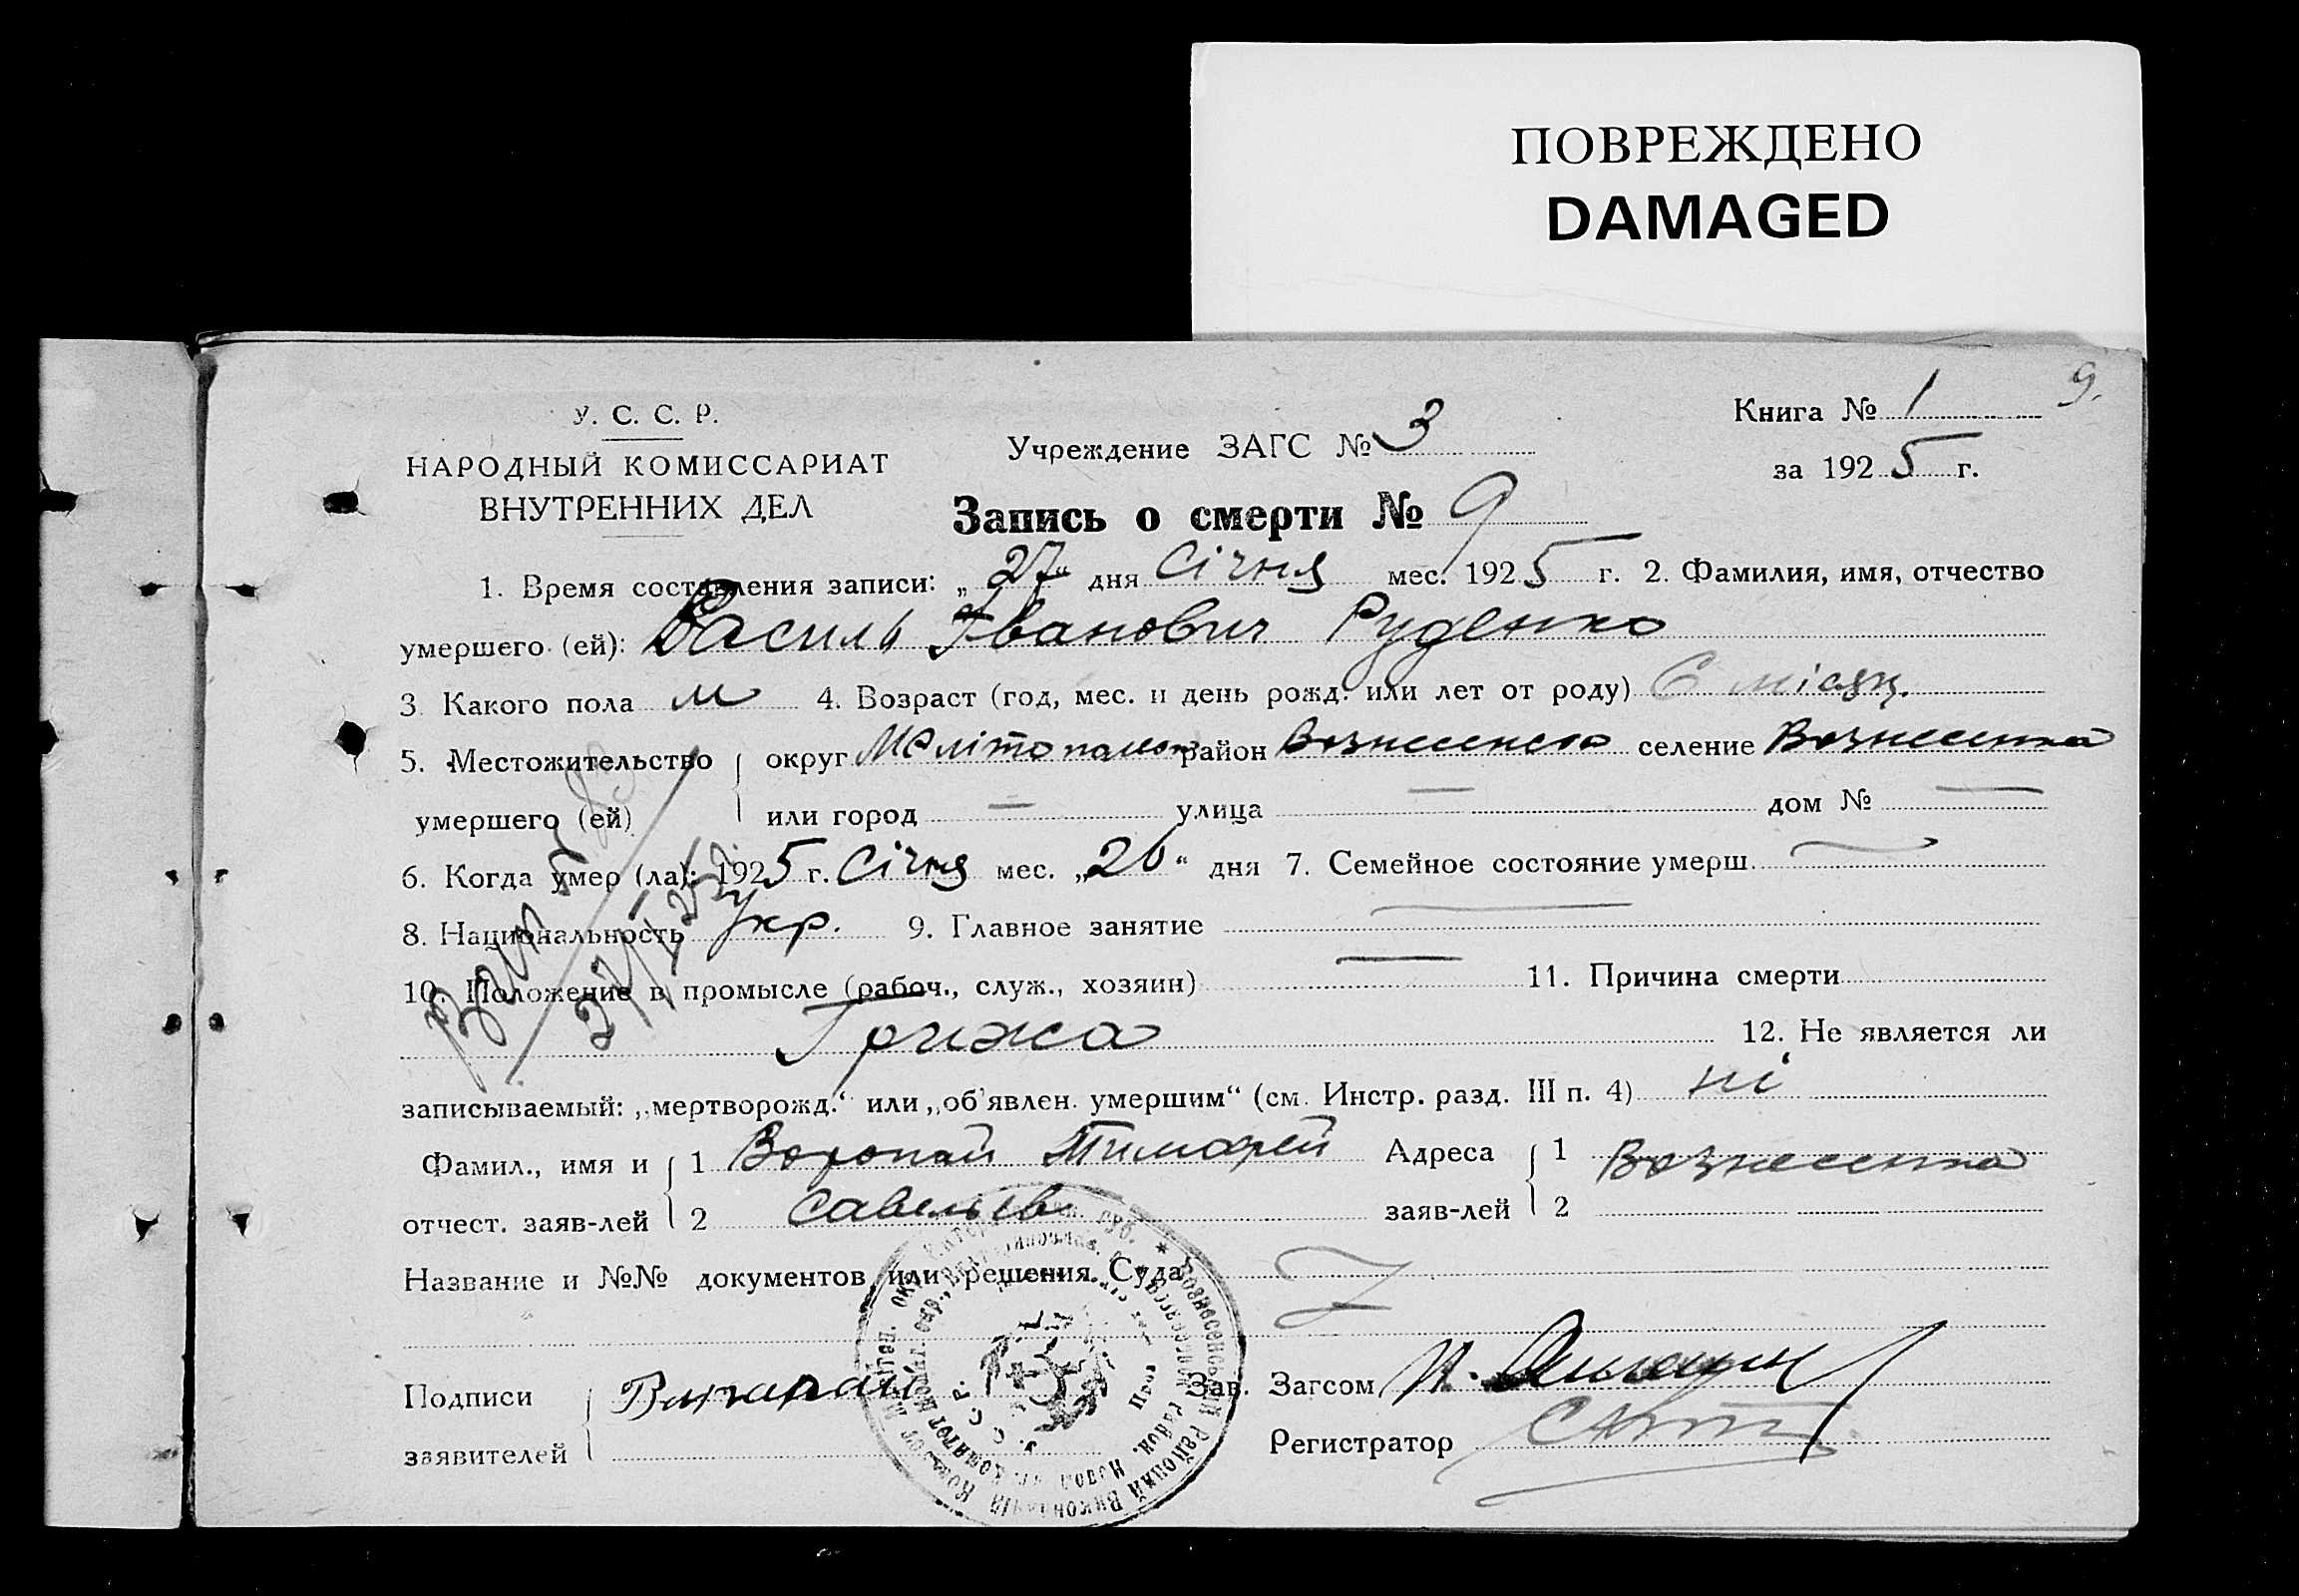 ПОВРЕЖДЕНО
DAMAGED
9.
У. С. С. Р.
НАРОДНЫЙ КОМИССАРИАТ
ВНУТРЕННИХ ДЕЛ
Учреждение ЗАГС № 3
Книга № 1
за 1925 г.
Запись о смерти № 9
1. Время составления записи: „27“ дня Січня мес. 1925 г. 2. Фамилия, имя, отчество
умершего (ей): Василь Іванович Руденко
3. Какого пола м 4. Возраст (год, мес. и день рожд. или лет от роду) 6 місяц.
5. Местожительство округ Мелітопольск район Вознесенско селение Вознесенка
умершего (ей) или город — улица — дом № —
6. Когда умер (ла): 1925 г. Січня мес. „26“ дня 7. Семейное состояние умерш. —
8. Национальность укр. 9. Главное занятие —
10. Положение в промысле (рабоч., служ., хозяин) — 11. Причина смерти
Грижа 12. Не является ли
записываемый: „мертворожд.“ или „об'явлен. умершим“ (см. Инстр. разд. III п. 4) ні
Фамил., имя и 1 Воропай Тимофей Адреса 1 Вознесенка
отчест. заяв-лей 2 Савельев заяв-лей 2
Название и №№ документов или решения Суда
Подписи Воропай Зав. Загсом
заявителей Регистратор
Вознесенський Районий Виконавчий
У. С. С. Р.